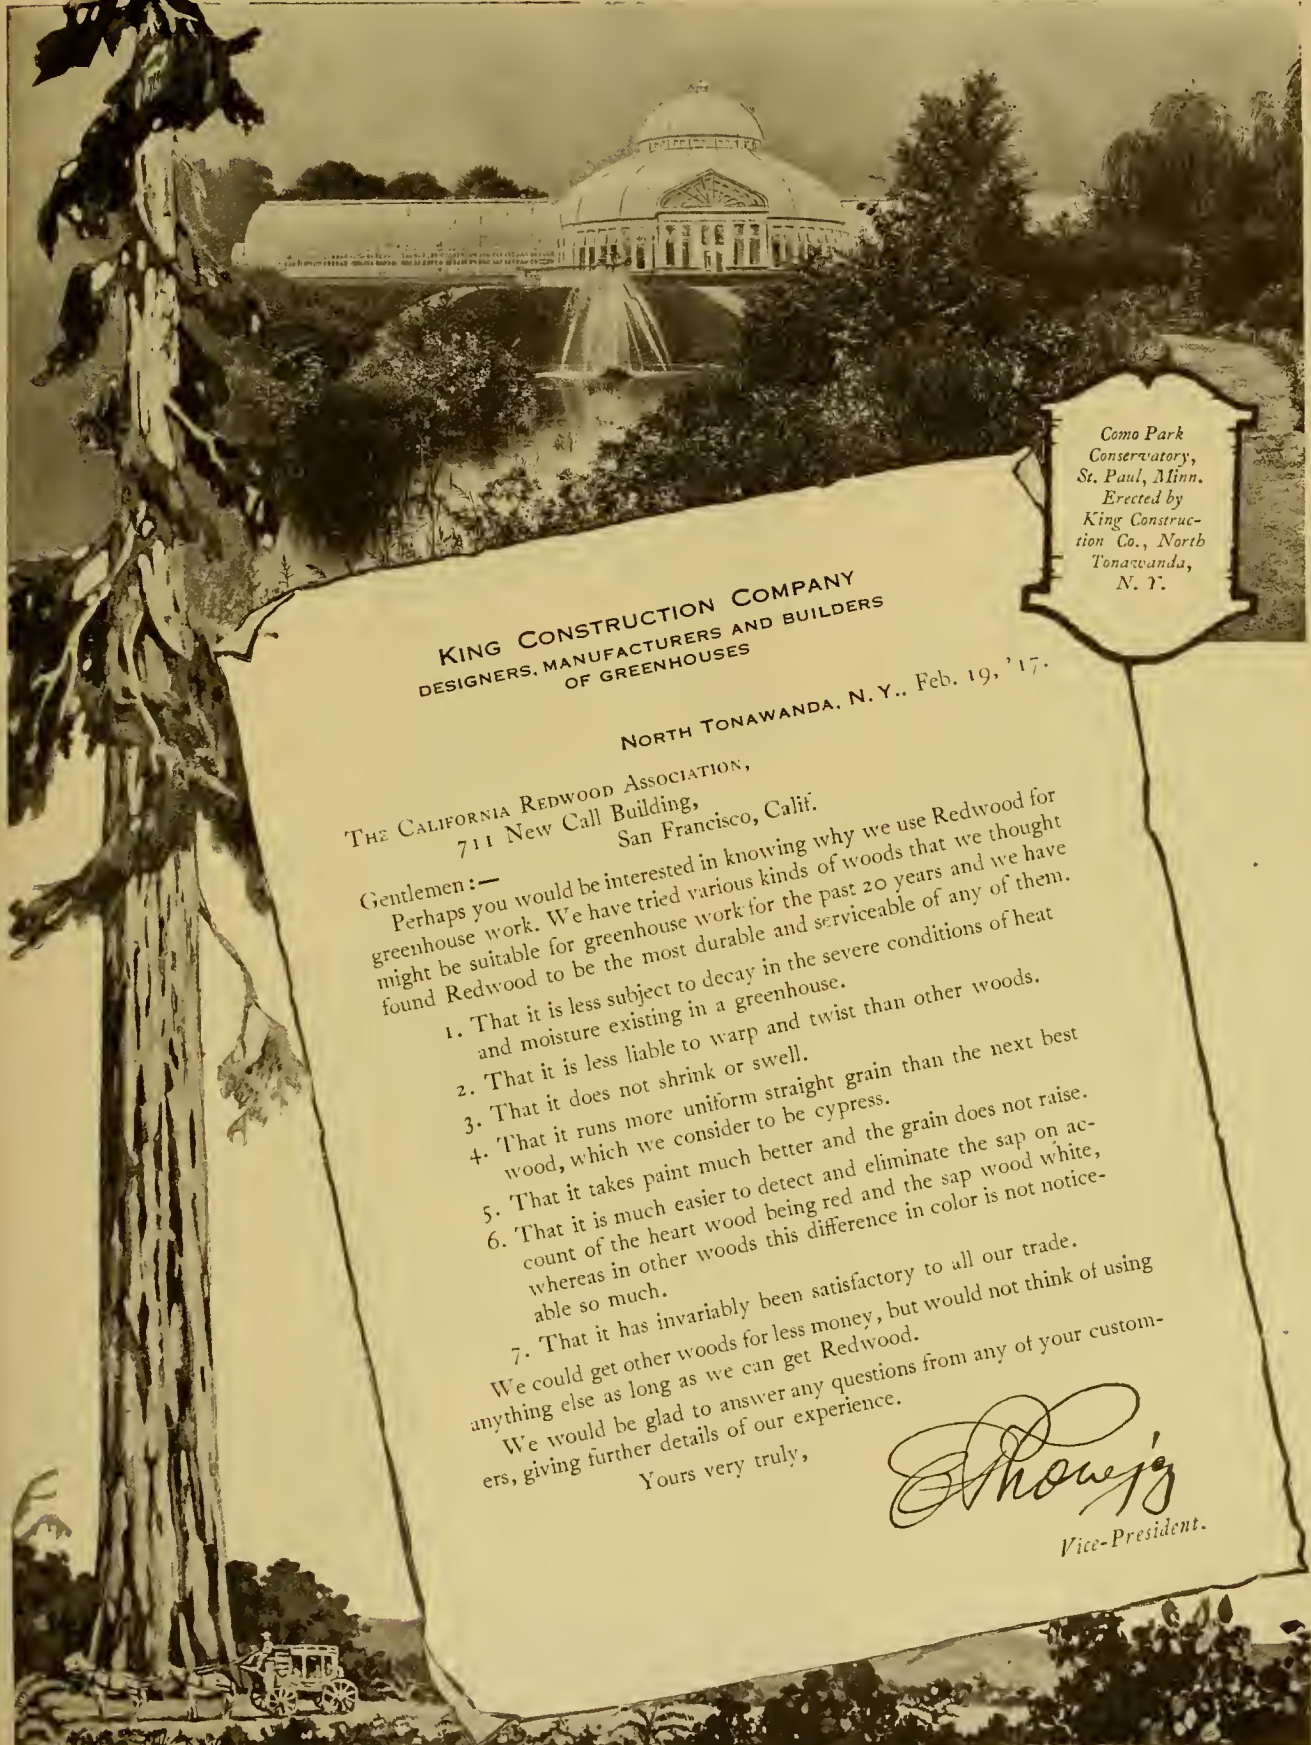 Como Park
Conservatory,
St. Paul, Minn.
Erected by
King Construc-
tion Co., North
Tonawanda,
N. Y.
KING CONSTRUCTION COMPANY
DESIGNERS, MANUFACTURERS AND BUILDERS
OF GREENHOUSES
NORTH TONAWANDA, N. Y., Feb. 19, '17.
THE CALIFORNIA REDWOOD ASSOCIATION,
711 New Call Building,
San Francisco, Calif.
Gentlemen:—
Perhaps you would be interested in knowing why we use Redwood for
greenhouse work. We have tried various kinds of woods that we thought
might be suitable for greenhouse work for the past 20 years and we have
found Redwood to be the most durable and serviceable of any of them.
1. That it is less subject to decay in the severe conditions of heat
and moisture existing in a greenhouse.
2. That it is less liable to warp and twist than other woods.
3. That it does not shrink or swell.
4. That it runs more uniform straight grain than the next best
wood, which we consider to be cypress.
5. That it takes paint much better and the grain does not raise.
6. That it is much easier to detect and eliminate the sap on ac-
count of the heart wood being red and the sap wood white,
whereas in other woods this difference in color is not notice-
able so much.
7. That it has invariably been satisfactory to all our trade.
We could get other woods for less money, but would not think of using
anything else as long as we can get Redwood.
We would be glad to answer any questions from any of your custom-
ers, giving further details of our experience.
Yours very truly,
Vice-President.